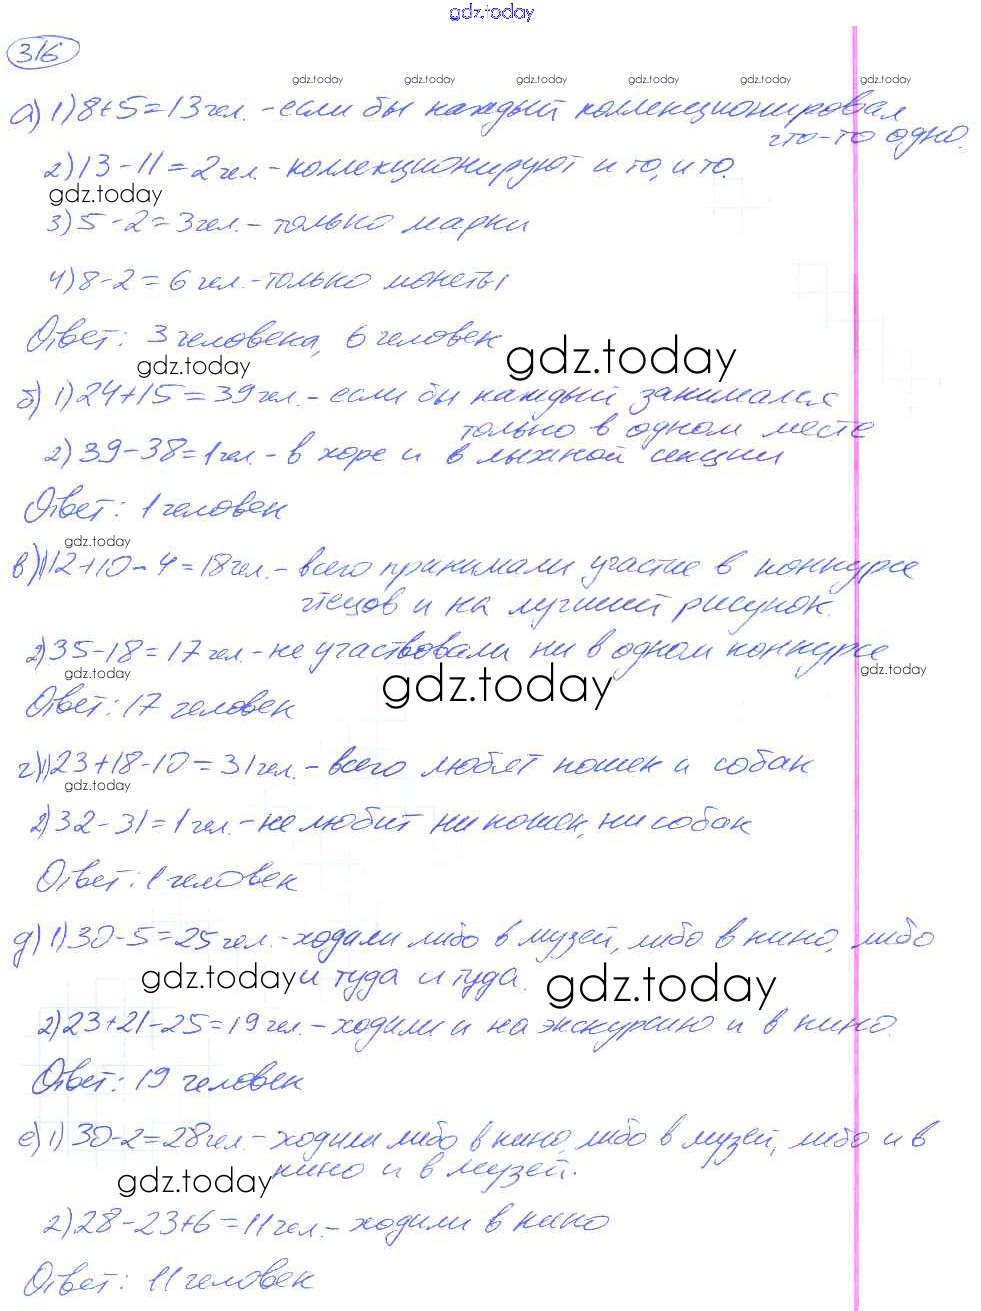 gdz.today
316
gdz.today gdz.today gdz.today gdz.today gdz.today gdz.today
а) 1) 8+5=13 чел. - если бы каждый коллекционировал
что-то одно.
2) 13-11=2 чел. - коллекционируют и то, и то.
gdz.today
3) 5-2=3 чел. - только марки
4) 8-2=6 чел. - только монеты
Ответ: 3 человека, 6 человек
gdz.today
gdz.today
б) 1) 24+15=39 чел. - если бы каждый занимался
только в одном месте
2) 39-38=1 чел. - в хоре и в лыжной секции
Ответ: 1 человек
gdz.today
в) 1) 12+10-4=18 чел. - всего принимали участие в конкурсе
чтецов и на лучший рисунок.
2) 35-18=17 чел. - не участвовали ни в одном конкурсе
gdz.today gdz.today gdz.today
Ответ: 17 человек
г) 1) 23+18-10=31 чел. - всего любят кошек и собак
gdz.today
2) 32-31=1 чел. - не любит ни кошек, ни собак
Ответ: 1 человек
д) 1) 30-5=25 чел. - ходили либо в музей, либо в кино, либо
и туда и туда.
gdz.today gdz.today
2) 23+21-25=19 чел. - ходили и на экскурсию и в кино.
Ответ: 19 человек
е) 1) 30-2=28 чел. - ходили либо в кино, либо в музей, либо и в
кино и в музей.
gdz.today
2) 28-23+6=11 чел. - ходили в кино
Ответ: 11 человек